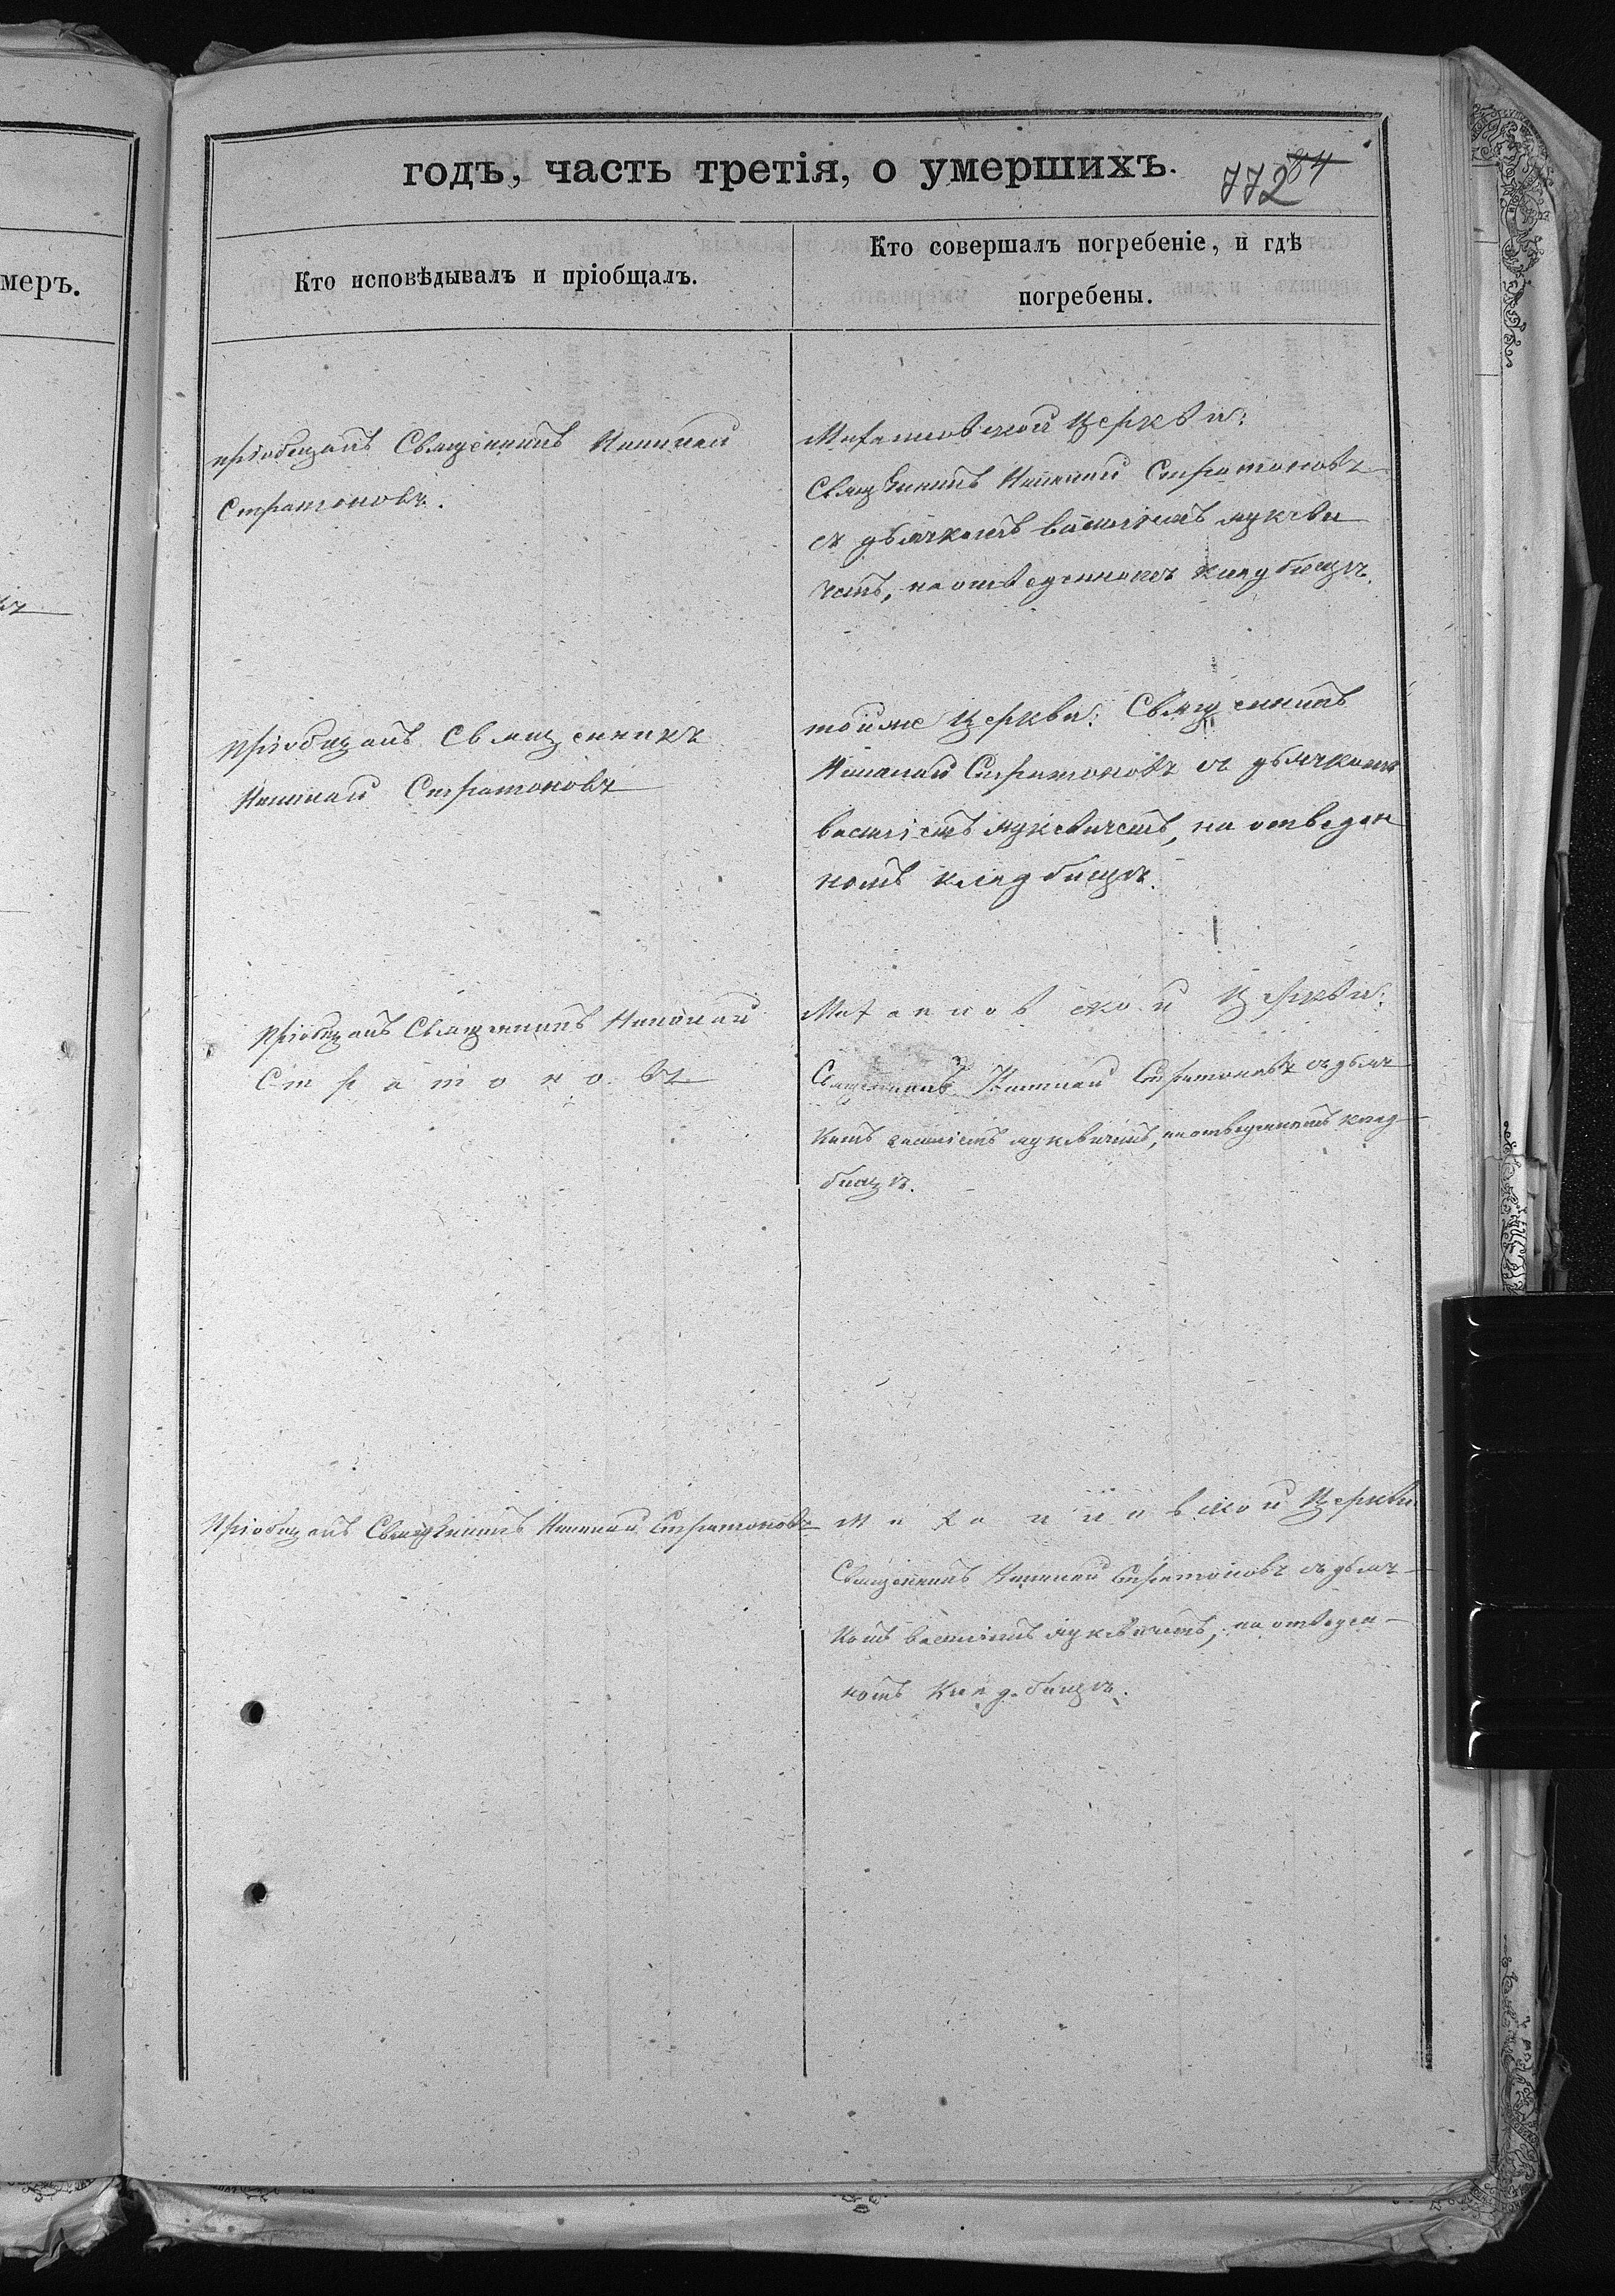 меръ.
годъ, часть третія, о умершихъ.
772 84
Кто исповѣдывалъ и пріобщалъ.
Кто совершалъ погребеніе, и гдѣ
погребены.
пріобщалъ Священникъ Николай
Стратоновъ.
церкви:
Священникъ Николай Стратоновъ
съ дьячкомъ василіемъ лукеви
чемъ, на отведенномъ кладбищѣ.
Пріобщалъ Священникъ
Николай Стратоновъ
тойже Церкви: Священникъ
Николай Стратоновъ съ дьячкомъ
василіемъ лукевичемъ, на отведен
номъ кладбищѣ.
Пріобщалъ Священникъ Николай
Стратоновъ
Церкви:
Священникъ Николай Стратоновъ съ дьяч
комъ василіемъ лукевичемъ, на отведенномъ клад-
бищѣ.
Пріобщалъ Священникъ Николай Стратоновъ
Церкви
Священникъ Николай Стратоновъ съ дьяч-
комъ василіемъ лукевичемъ, на отведен-
номъ кладбищѣ.